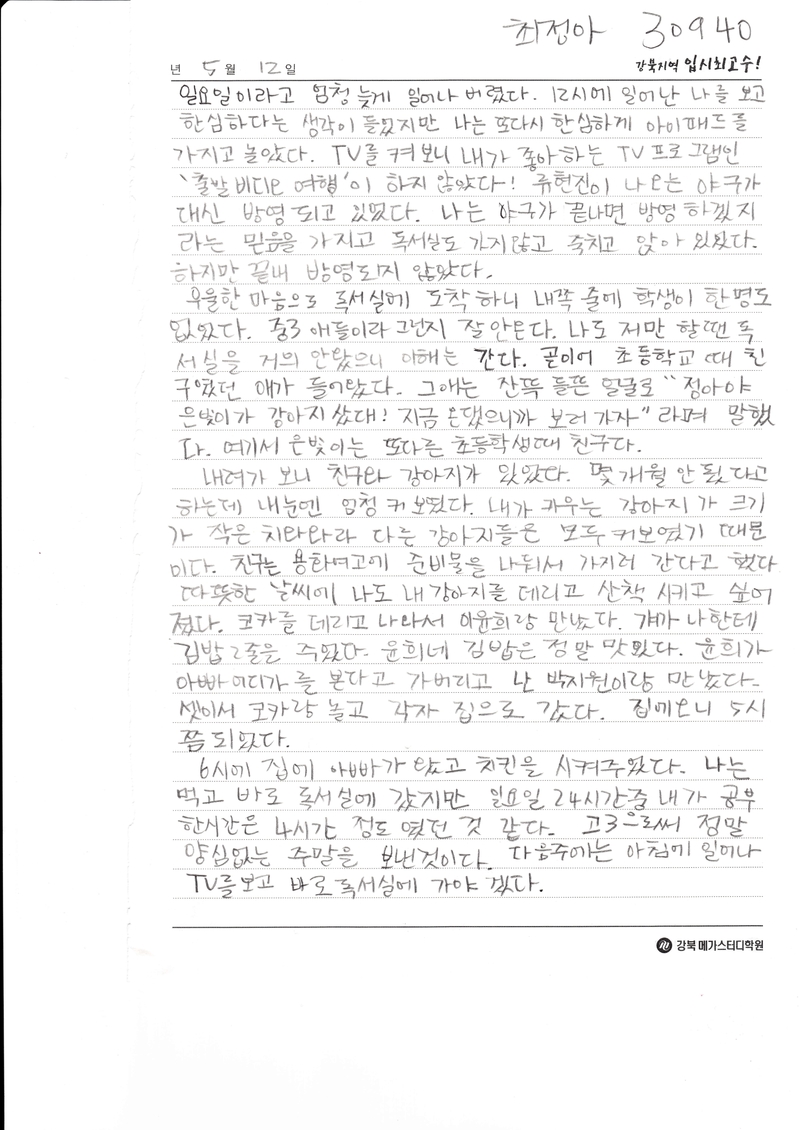 최정아 30940
년 5월 12일 강북지역 입시최고수!
일요일이라고 엄청 늦게 일어나 버렸다. 12시에 일어난 나를 보고
한심하다는 생각이 들었지만 나는 또다시 한심하게 아이패드를
가지고 놀았다. TV를 켜 보니 내가 좋아하는 TV 프로그램인
'출발 비디오 여행'이 하지 않았다! 류현진이 나오는 야구가
대신 방영 되고 있었다. 나는 야구가 끝나면 방영 하겠지
라는 믿음을 가지고 독서실도 가지않고 죽치고 앉아 있었다.
하지만 끝내 방영되지 않았다.
우울한 마음으로 독서실에 도착 하니 내쪽 줄에 학생이 한명도
없었다. 중3 애들이라 그런지 잘 안온다. 나도 저만 할땐 독
서실을 거의 안왔으니 이해는 간다. 곧이어 초등학교 때 친
구였던 애가 들어왔다. 그애는 잔뜩 들뜬 얼굴로 "정아야
은빛이가 강아지 샀대! 지금 온댔으니까 보러 가자" 라며 말했
다. 여기서 은빛이는 또다른 초등학생때 친구다.
내려가 보니 친구와 강아지가 있었다. 몇 개월 안 됐다고
하는데 내눈엔 엄청 커 보였다. 내가 키우는 강아지가 크기
가 작은 치와와라 다른 강아지들은 모두 커보였기 때문
이다. 친구는 용화여고에 준비물을 나둬서 가지러 간다고 했다
따뜻한 날씨에 나도 내 강아지를 데리고 산책 시키고 싶어
졌다. 코카를 데리고 나와서 이윤희랑 만났다. 걔가 나한테
김밥 2줄을 주었다. 윤희네 김밥은 정말 맛있다. 윤희가
아빠 어디가를 본다고 가버리고 난 박지원이랑 만났다.
셋이서 코카랑 놀고 각자 집으로 갔다. 집에오니 5시
쯤 되었다.
6시에 집에 아빠가 왔고 치킨을 시켜주었다. 나는
먹고 바로 독서실에 갔지만 일요일 24시간중 내가 공부
한시간은 4시간 정도 였던 것 같다. 고3으로써 정말
양심없는 주말을 보낸것이다. 다음주에는 아침에 일어나
TV를보고 바로 독서실에 가야 겠다.
강북 메가스터디학원